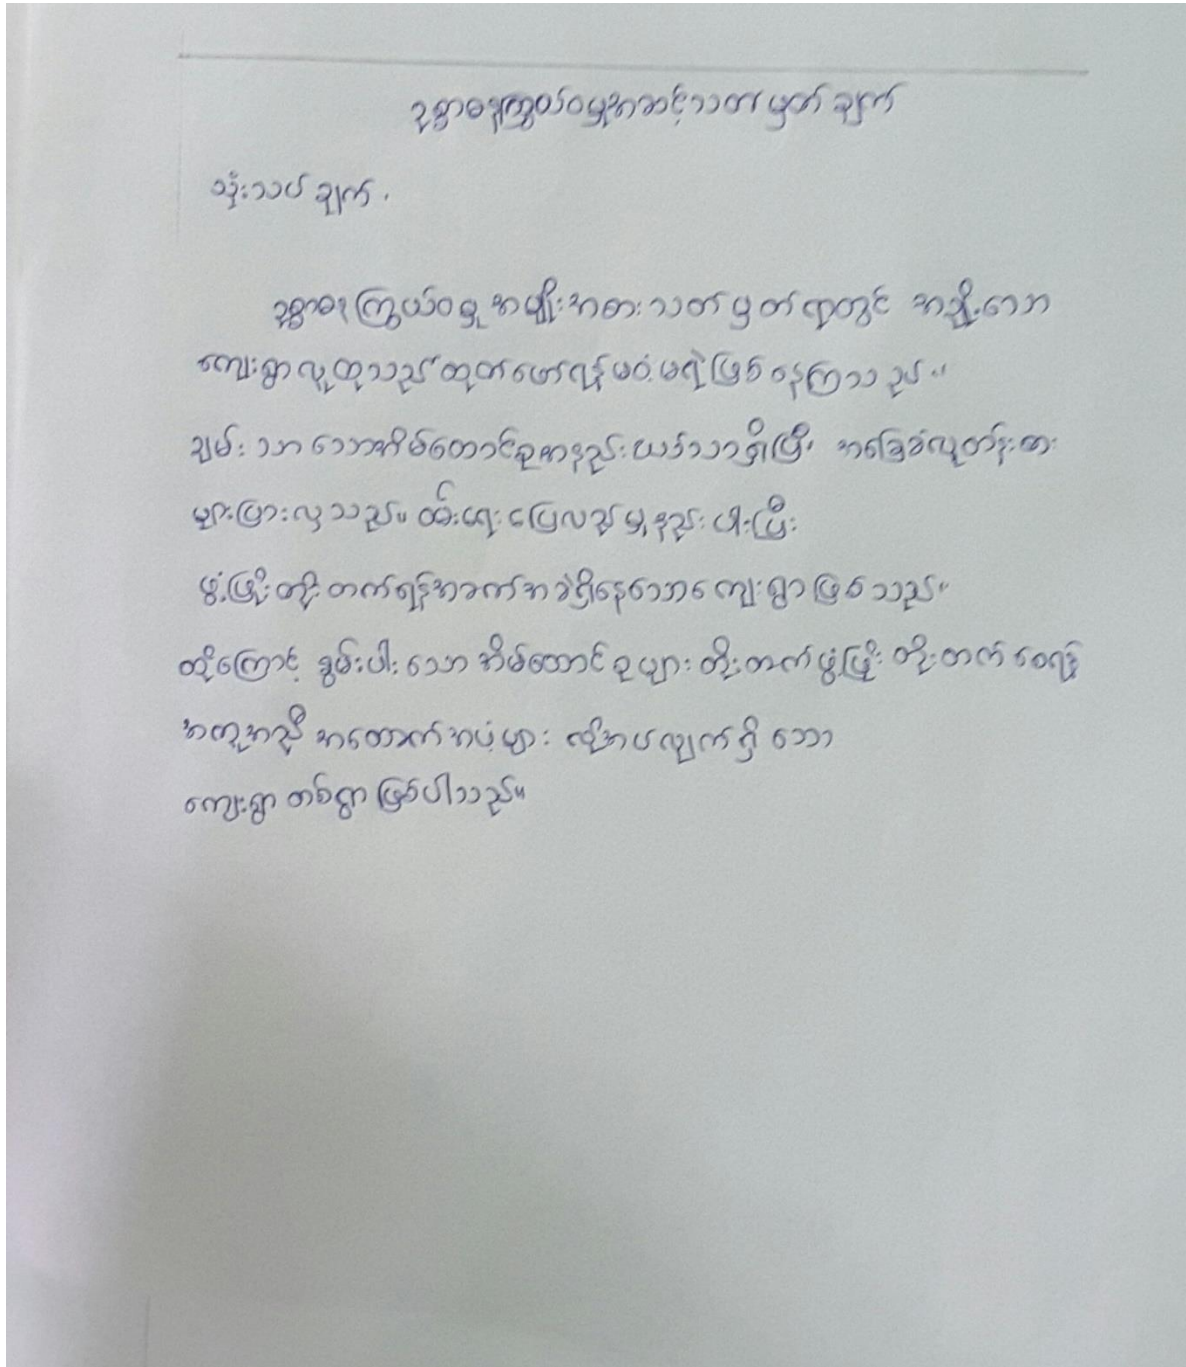 ဥစ္စာဓနကြွယ်ဝမှုအဆင့်သတ်မှတ်ချက်
သုံးသပ်ချက်.
ဥစ္စာဓနကြွယ်ဝမှုအမျိုးအစားသတ်မှတ်ရာတွင် အချို့သော
ကျေးရွာလူထုသည် ထုတ်ဖော်ရန်မဝံ့မရဲဖြစ်နေကြသည်။
ချမ်းသာသောအိမ်ထောင်စုအနည်းငယ်သာရှိပြီး အခြေခံလူတန်းစား
များပြားလှသည်။ ဝမ်းရေးပြေလည်မှုနည်းပါးပြီး
ဖွံ့ဖြိုးတိုးတက်ရန်အခက်အခဲရှိနေသောကျေးရွာဖြစ်သည်။
ထို့ကြောင့် နွမ်းပါးသော အိမ်ထောင်စုများ တိုးတက်ဖွံ့ဖြိုး တိုးတက်စေရန်
အကူအညီ အထောက်အပံ့များ လိုအပ်လျက်ရှိသော
ကျေးရွာတစ်ရွာဖြစ်ပါသည်။